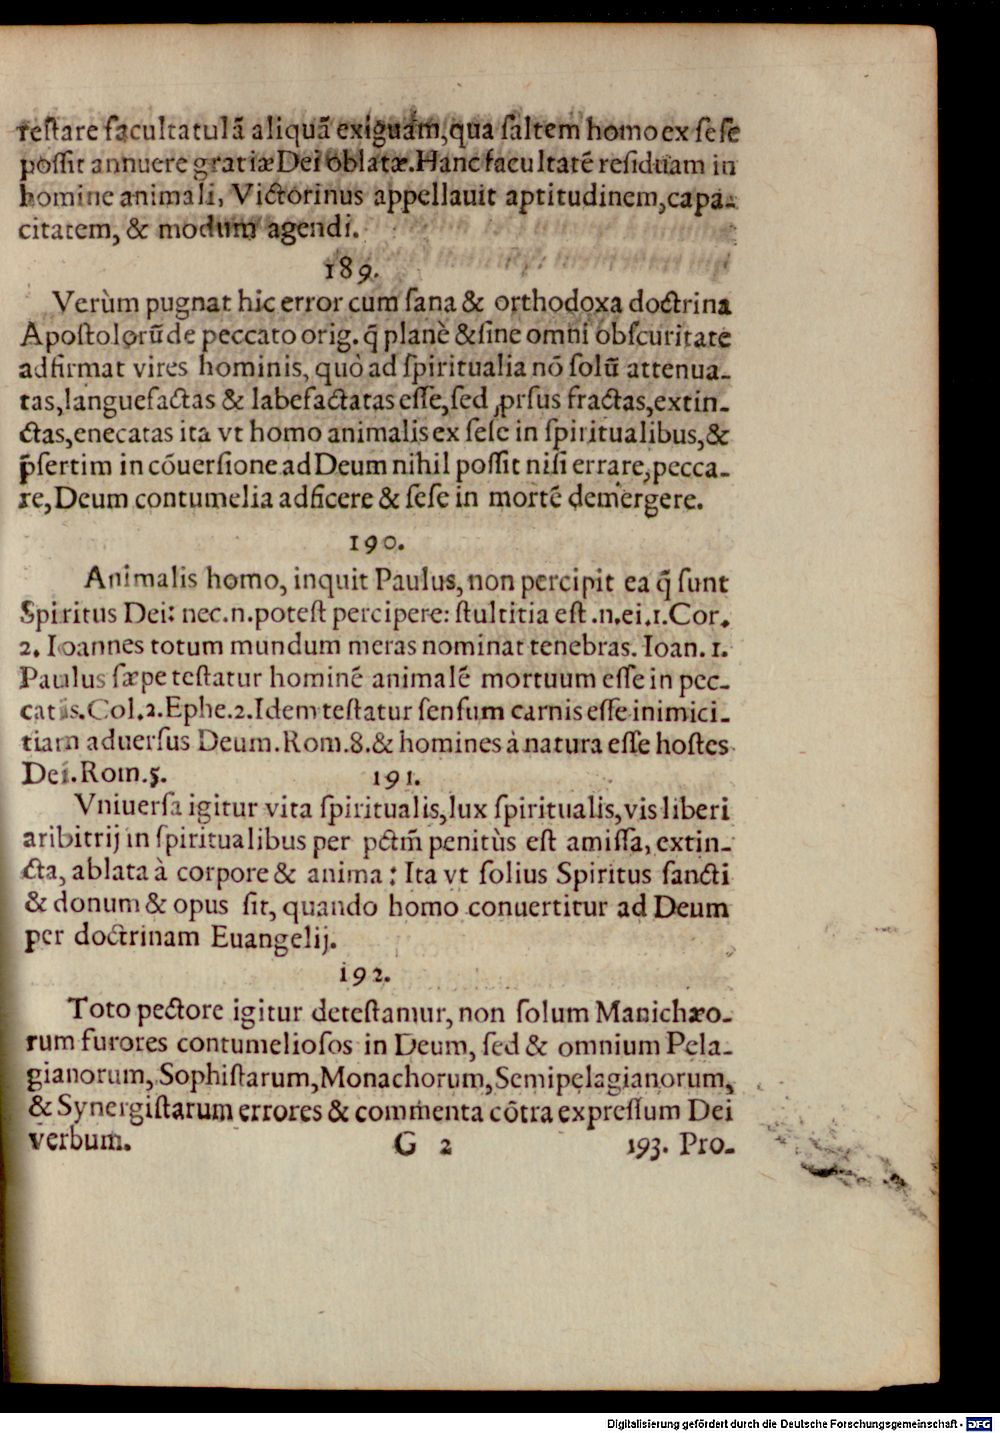 reſtare facultatulā aliquā exiguam,qua ſaltem homo ex ſeſe
poſſit annuere gratiæ Dei oblatæ.Hanc facultatē reſiduam in
homine animali, Victorinus appellauit aptitudinem,capa-
citatem, & modum agendi.
189.
Verùm pugnat hic error cum ſana & orthodoxa doctrina
Apoſtolorū de peccato orig. q̄ planè & ſine omni obſcuritate
adfirmat vires hominis, quò ad ſpiritualia nō ſolū attenua-
tas,languefactas & labefactatas eſſe,ſed ꝓrſus fractas,extin-
ctas,enecatas ita vt homo animalis ex ſeſe in ſpiritualibus,&
p̄ſertim in cōuerſione ad Deum nihil poſſit niſi errare,pecca-
re,Deum contumelia adficere & ſeſe in mortē demergere.
190.
Animalis homo, inquit Paulus, non percipit ea q̄ ſunt
Spiritus Dei: nec.n.poteſt percipere: ſtultitia eſt .n.ei.1.Cor.
2. Ioannes totum mundum meras nominat tenebras. Ioan. 1.
Paulus ſæpe teſtatur hominē animalē mortuum eſſe in pec-
catis.Col.2.Ephe.2.Idem teſtatur ſenſum carnis eſſe inimici-
tiam aduerſus Deum.Rom.8.& homines à natura eſſe hoſtes
Dei.Rom.5.
191.
Vniuerſa igitur vita ſpiritualis,lux ſpiritualis,vis liberi
aribitrij in ſpiritualibus per pctm̄ penitùs eſt amiſſa, extin-
cta, ablata à corpore & anima: Ita vt ſolius Spiritus ſancti
& donum & opus ſit, quando homo conuertitur ad Deum
per doctrinam Euangelij.
192.
Toto pectore igitur deteſtamur, non ſolum Manichæo-
rum furores contumelioſos in Deum, ſed & omnium Pela-
gianorum, Sophiſtarum,Monachorum,Semipelagianorum,
& Synergiſtarum errores & commenta cōtra expreſſum Dei
verbum.
G 2
193. Pro-
Digitalisierung gefördert durch die Deutsche Forschungsgemeinschaft - DFG